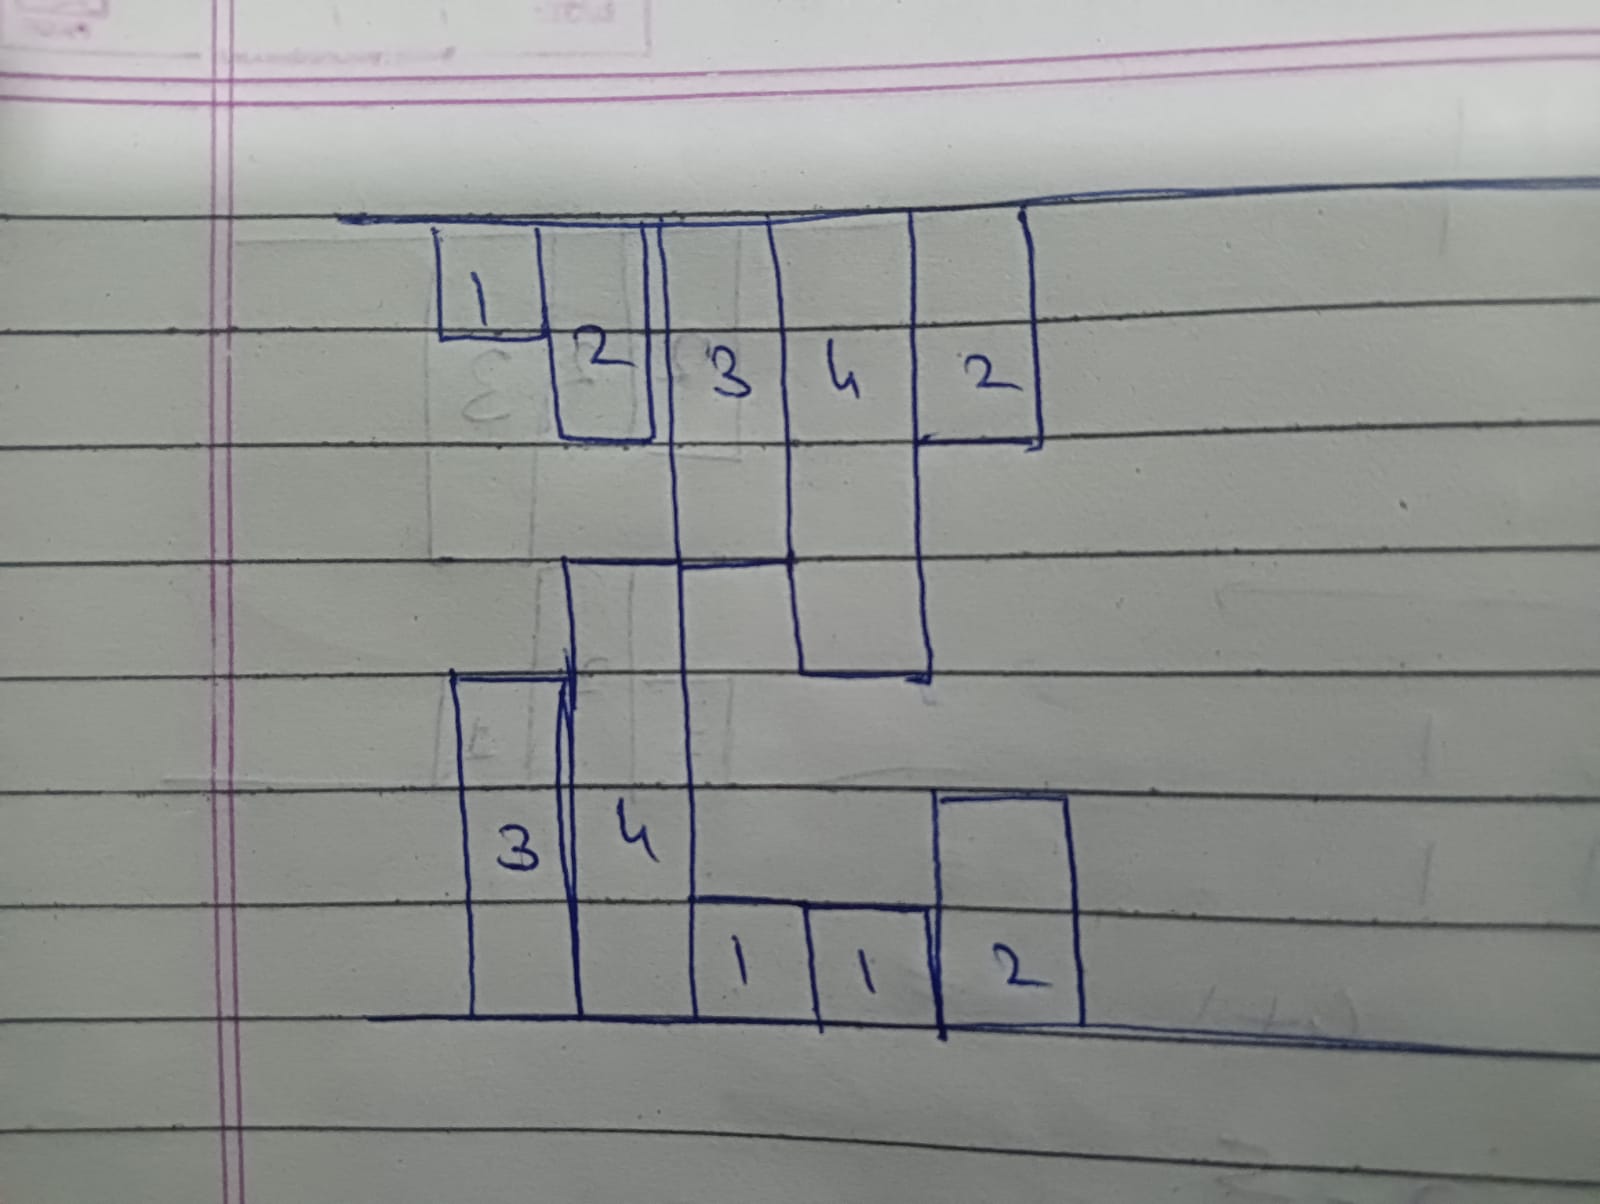 1 2 3 4 2
3 4 1 1 2